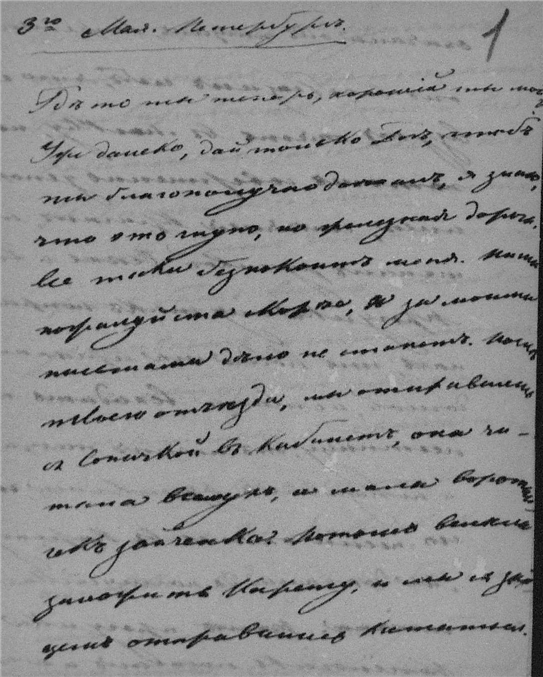 3го Мая. Петербургъ.
1
Гдѣ то ты теперь, хорошій ты мой
Ужь далеко, дай только Богъ, чтобъ
ты благополучно доехалъ, я знаю,
что это глупо, но железная дорога,
все таки безпокоитъ меня. Пиши
пожалуйста Морча, я за моими
письмами дѣло не станетъ. После
твоего отъѣзда, мы отправились
съ Соничкой въ Кабинетъ, она чи-
тала вслухъ, а мама
Потомъ велела
заложить Карету, и мы съ
отправились кататься.